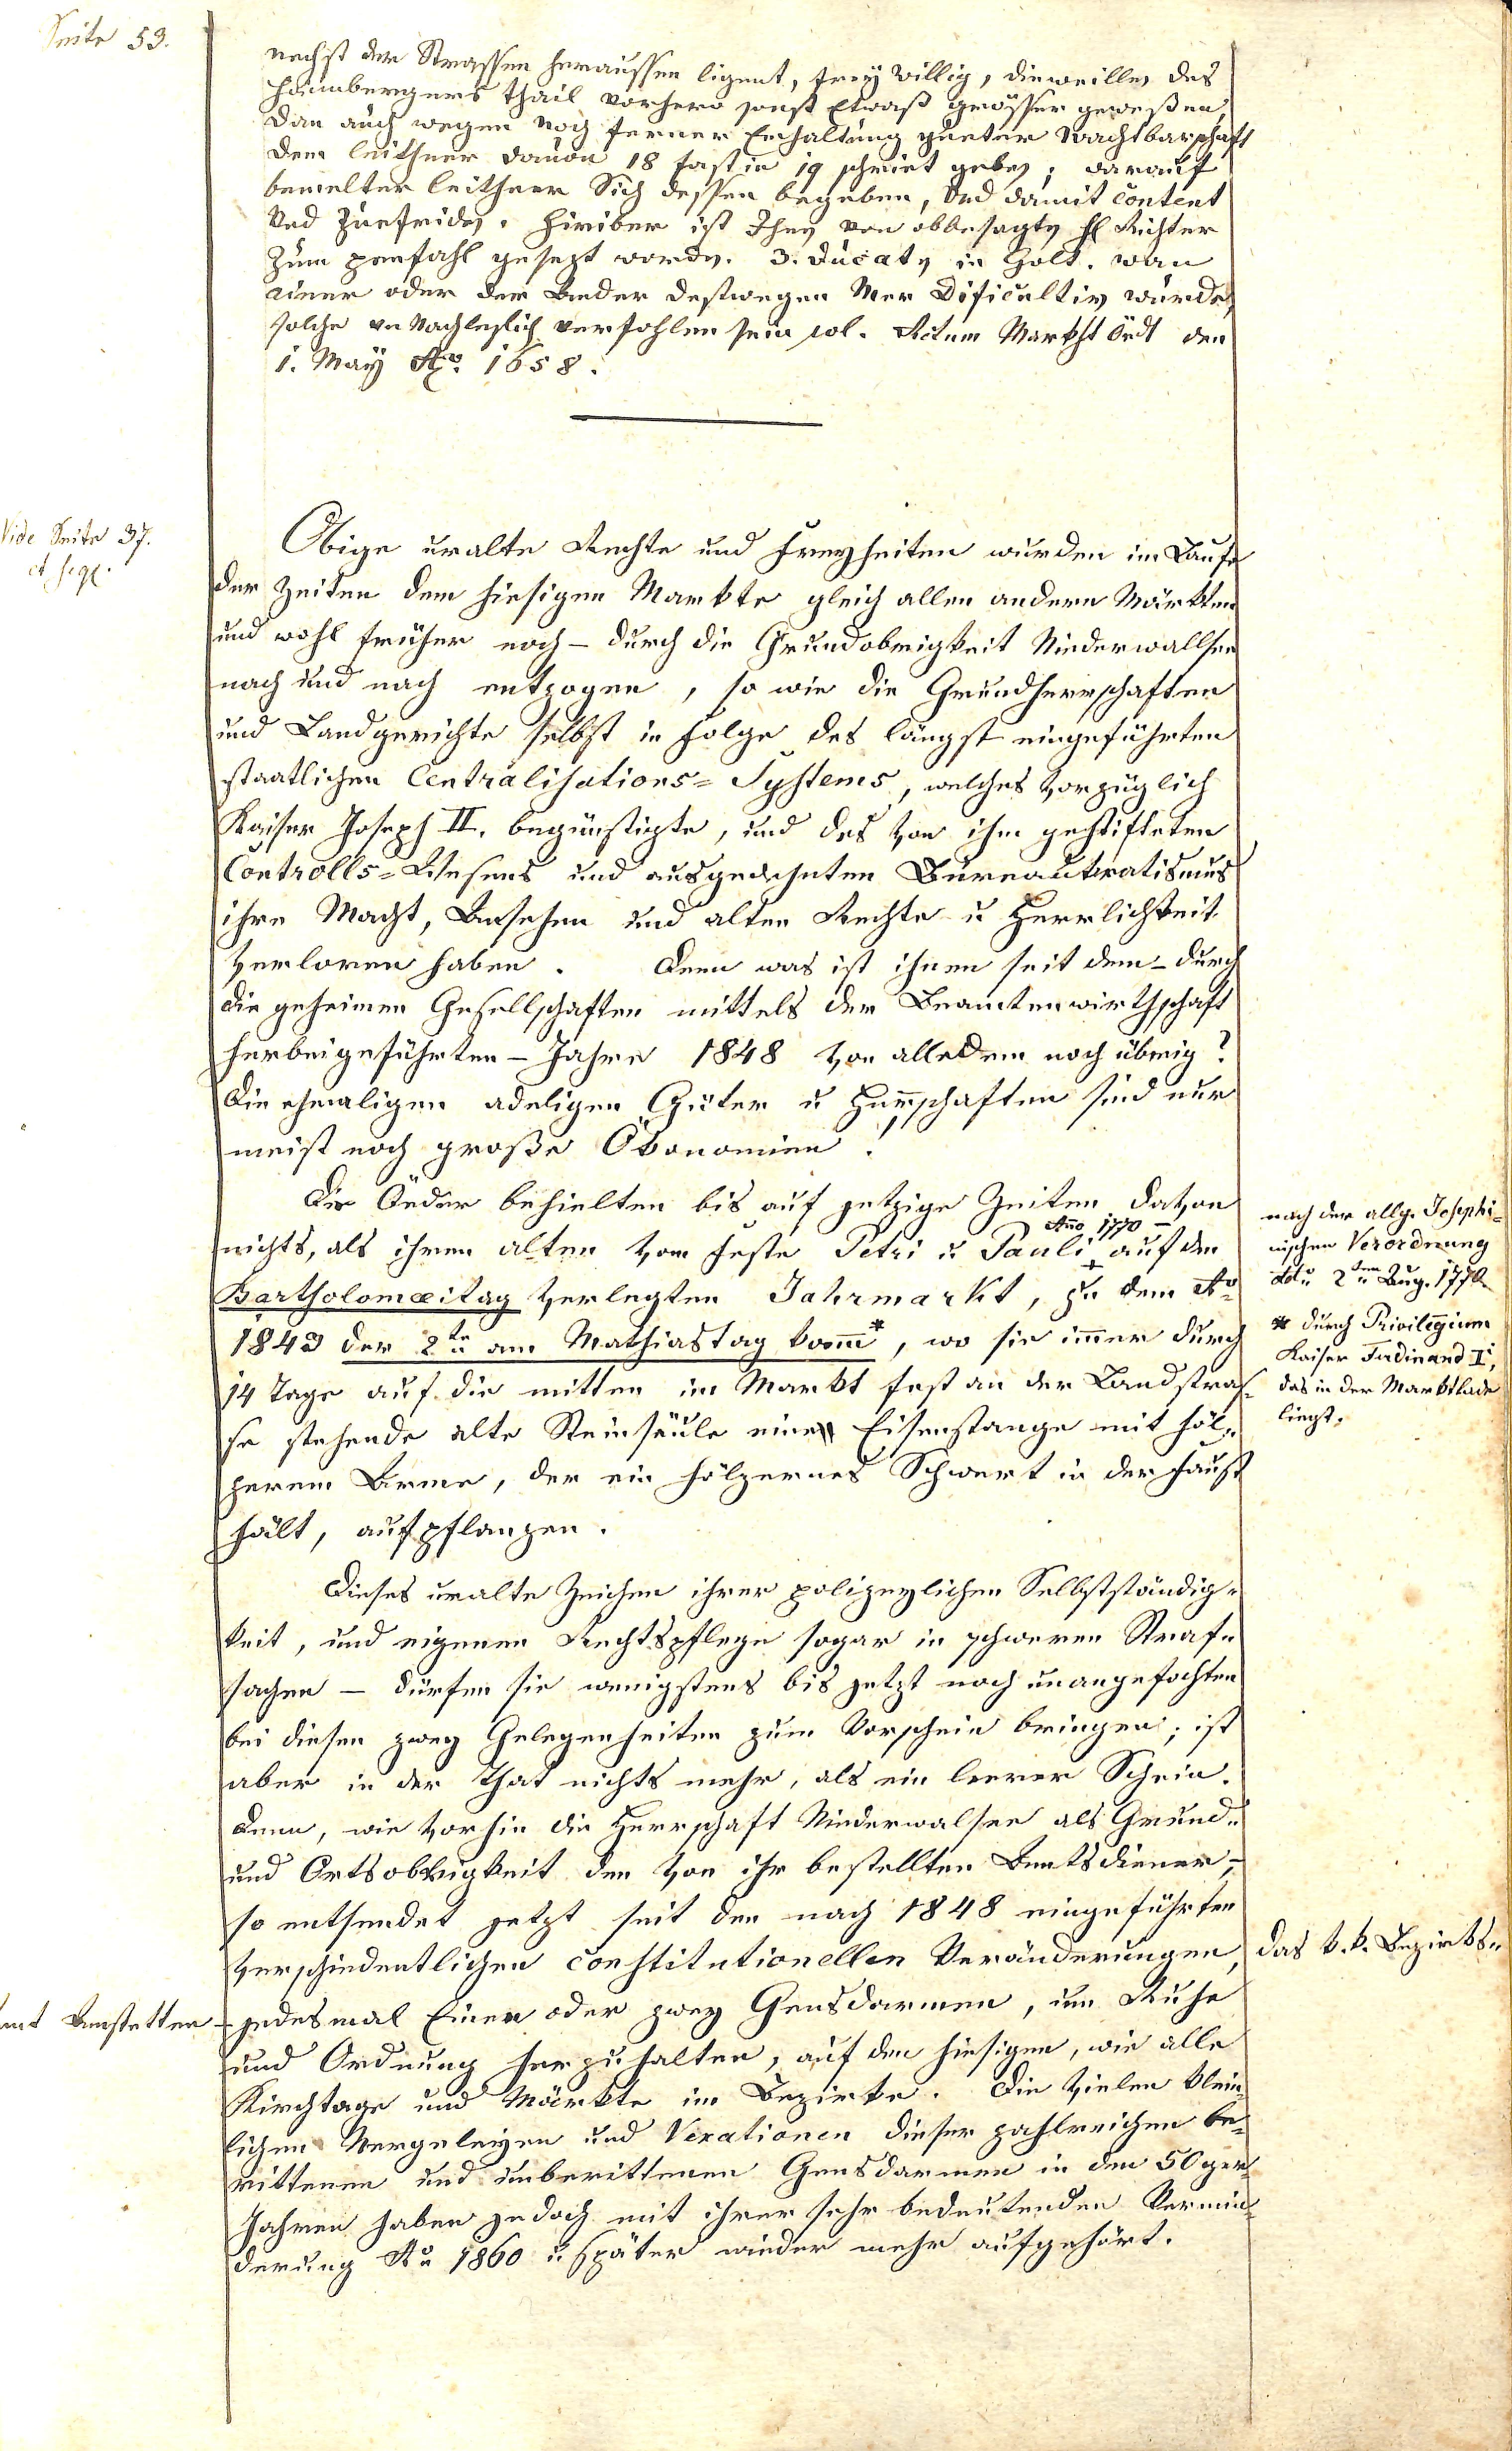 Seite 53.
nechst der Strassen heraussen ligent, frey willig, dieweillen des
Haimbergers thail vorhero sonst Etwaß grösser geweßen,
Dan auch wegen noch ferner Erhaltung gueter Nachtbarschafft
dem leithner dauon 18 fast in 19 schriet geben; darauf
bemelter leithner Sich dessen begeben, Und damit Content
Und Zuefriden. Hiriber ist Ihnen von obbesagten H Richter
Zum penfahl gesezt worden. 3. Ducaten in Golt. wan
ainer oder der Ander destwegen Mer Dificultirn wurde,
solche un Nachleslich verfohlen sein sol. Actum Markht Ördt den
1. May Ao. 1658.
Vide Seite 37.
et seqq.
Obige uralte Rechte und Freyheiten wurden im Laufe
der Zeiten dem hiesigen Markte gleich allen andern Märkten
und wohl früher noch – durch die Grundobrigkeit Niederwallsee
nach und nach entzogen, so wie die Grundherrschaften
und Landgerichte selbst in Folge des längst eingeführten
staatlichen Centralisations= Systems, welches vorzüglich
Kaiser Joseph II. begünstigte, und des von ihm gestifteten
Controlls= Wesens und ausgedehnten Bureaukratismus
ihre Macht, Ansehen und alten Rechte u Herrlichkeit
verloren haben. Denn was ist ihnen seit dem – durch
die geheimen Gesellschaften mittels der Beamtenwirthschaft
herbeigeführten – Jahre 1848 von alledem noch übrig?
Die ehmaligen adeligen Güter u Herrschaften sind nur
meist noch große Ökonomien!
Die Öeder behielten bis auf jetzige Zeiten davon
nichts, als ihren alten vom Feste Petri u Pauli + Ano 1770 – auf den
Bartholomæitag verlegten Jahrmarkt, zu dem Ao
1843 der 2te am Mathiastag kom̄*, wo sie im̄er durch
14 Tage auf die mitten im Markt fest an der Landstras=
se stehende alte Steinsäule eine Eisenstange mit höl=
zerem Arme, der ein hölzernes Schwert in der Faust
hält, aufpflanzen.
nach der allg. Josephi=
nischen Verordnung
ddo 2ten Aug. 1770.
* durch Privilegium
Kaiser Ferdinand I,
das in der Marktlade
liegt.
Dieses uralte Zeichen ihrer polizeylichen Selbstständig=
keit, und eigenen Rechtspflege sogar in schweren Straf=
sachen – dürfen sie wenigstens bis jetzt noch unangefochten
bei diesen zwey Gelegenheiten zum Vorschein bringen; ist
aber in der That nichts mehr, als ein leerer Schein.
Denn, wie vorhin die Herrschaft Niederwalsee als Grund=
und Ortsobrigkeit den von ihr bestellten Amtsdiener,–
so entsendet jetzt seit den nach 1848 eingeführten
verschiedentlichen constitutionellen Veränderungen, das k. k. Bezirks=
amt Amstetten – jedesmal Einen oder zwey Gensdarmen, um Ruhe
und Ordnung herzuhalten, auf den hiesigen, wie alle
Kirchtage und Märkte im Bezirke. Die vielen klein=
lichen Nergeleyen und Vexationen dieser zahlreichen be=
rittenen und unberittenen Gensdarmen in den 50ger
Jahren haben jedoch mit ihrer sehr bedeutenden Vermin=
derung Ao 1860 u. später wieder mehr aufgehört.